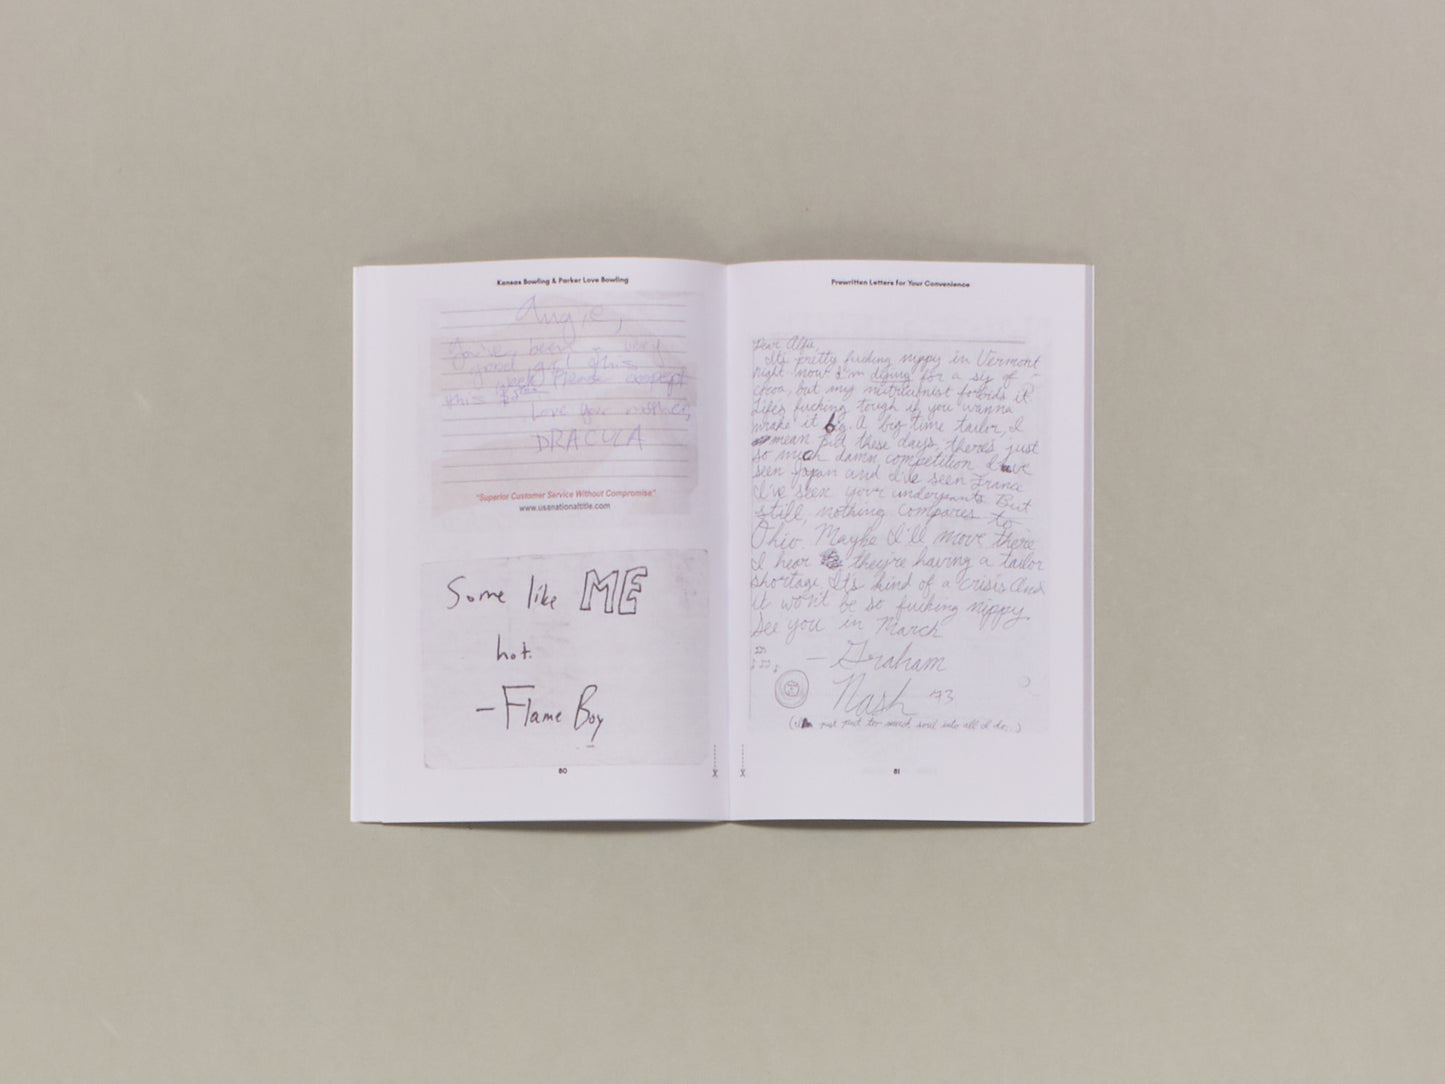 Kansas Bowling & Parker Love Bowling
Angie,
You've been a very
good girl this
week. Please accept
this
Love your mother,
DRACULA
"Superior Customer Service Without Compromise"
www.usanationaltitle.com
Some like ME
hot.
- Flame Boy
80
Prewritten Letters for Your Convenience
Dear Alfie,
It's pretty fucking nippy in Vermont
right now I'm dying for a sip of
cocoa, but my nutritionist forbids it
Life's fucking tough if you wanna
make it big. A big time tailor, I
mean But these days, there's just
so much damn competition I've
seen Japan and I've seen France
I've seen your underpants But
still, nothing compares to
Ohio. Maybe I'll move there
I hear they're having a tailor
shortage. It's kind of a crisis And
it won't be so fucking nippy
See you in March
- Graham
Nash 73
(I just put too much soul into all I do..)
81